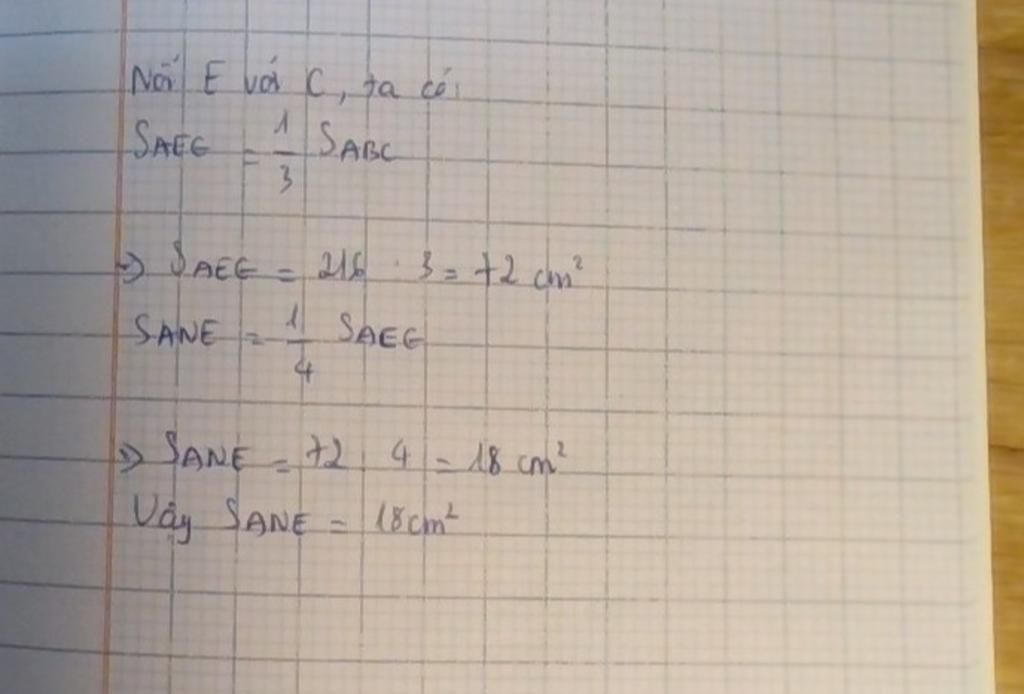 Nối E với C, ta có:
SAEC = 1/3 SABC
=> SAEC = 216 : 3 = 72 cm²
SANE = 1/4 SAEC
=> SANE = 72 : 4 = 18 cm²
Vậy SANE = 18cm²